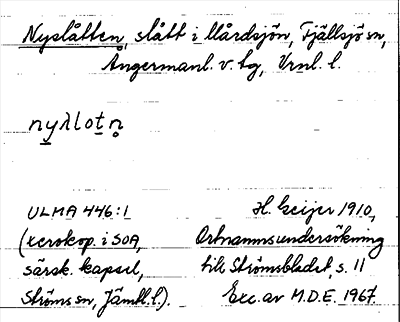 Nyslåtten, slått i Mårdsjön, Fjällsjö sn,
Ångermanl. v. tg, Vrnl. l.
nyλlotn̥
ULMA 446:1
(xerokop. i SOA,
särsk. kapsel,
Ströms sn, Jämtl. l.).
H. Geijer 1910,
Ortnamnsundersökning
till Strömsbladet, s. 11
Exc. av M.D.E. 1967.